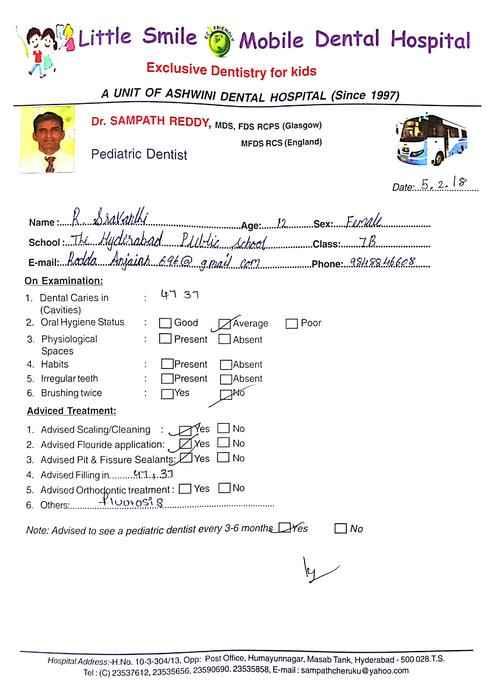 Little Smile ECO FRIENDLY Mobile Dental Hospital
Exclusive Dentistry for kids
A UNIT OF ASHWINI DENTAL HOSPITAL (Since 1997)
Dr. SAMPATH REDDY, MDS, FDS RCPS (Glasgow)
MFDS RCS (England)
Pediatric Dentist
Date: 5.2.18
Name: R. Sravanthi Age: 12 Sex: Female
School: The Hyderabad Public school Class: 7B
E-mail: @ gmail com Phone: 9848846608
On Examination:
1. Dental Caries in : 47 37
(Cavities)
2. Oral Hygiene Status : Good Average Poor
3. Physiological : Present Absent
Spaces
4. Habits : Present Absent
5. Irregular teeth : Present Absent
6. Brushing twice : Yes No
Adviced Treatment:
1. Advised Scaling/Cleaning : Yes No
2. Advised Flouride application: Yes No
3. Advised Pit & Fissure Sealants: Yes No
4. Advised Filling in 47, 37
5. Advised Orthodontic treatment : Yes No
6. Others: Fluorosis
Note: Advised to see a pediatric dentist every 3-6 months Yes No
Hospital Address:-H.No. 10-3-304/13, Opp: Post Office, Humayunnagar, Masab Tank, Hyderabad - 500 028.T.S.
Tel : (C) 23537612, 23535656, 23590690. 23535858, E-mail : sampathcheruku@yahoo.com